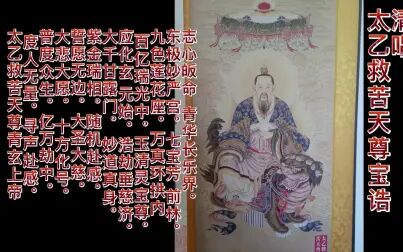 清唱
太乙救苦天尊宝诰
志心皈命 青华长乐界。
东极妙严宫。七宝芳 前林。
九色莲花座。万真环拱内。
百亿瑞光中。玉清灵宝尊。
应化玄 元始。浩劫垂慈济。
大千甘露门。妙道真身。
紫金瑞相。随机赴感。
誓愿无边。大圣大慈。
大悲大愿。十方化号。
普度众生。亿万劫中。
度人无量。寻声赴感。
太乙救苦天尊青玄上帝